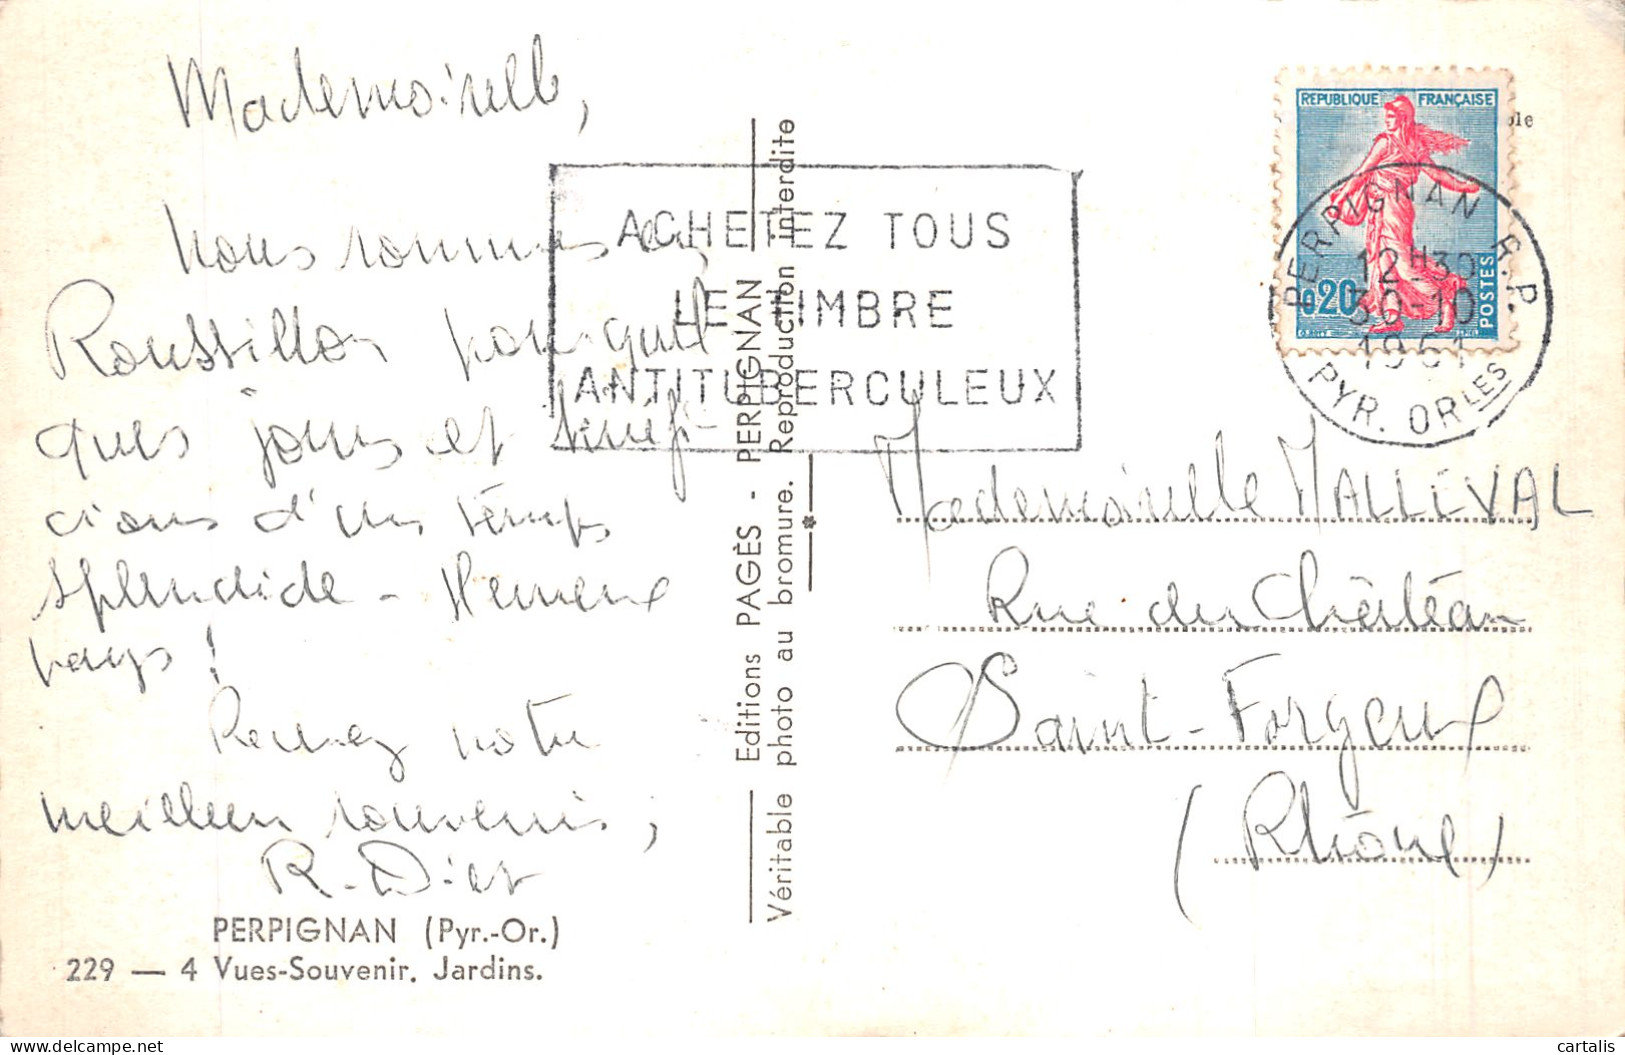 Mademoiselle,
Nous sommes en
Roussillon pour quel
ques jours et bénéfi
cions d'un temps
splendide - Heureux
pays !
Recevez notre
meilleur souvenir,
PERPIGNAN (Pyr.-Or.)
229 — 4 Vues-Souvenir. Jardins.
Editions PAGÈS - PERPIGNAN
Véritable photo au bromure. Reproduction interdite
ACHETEZ TOUS
LE TIMBRE
ANTITUBERCULEUX
REPUBLIQUE FRANÇAISE
0,20
POSTES
PERPIGNAN R.P.
12H30
30-10
1961
PYR. ORLES
Mademoiselle MALLEVAL
Rue du Château
Saint-Forgeux
(Rhône)
cartalis